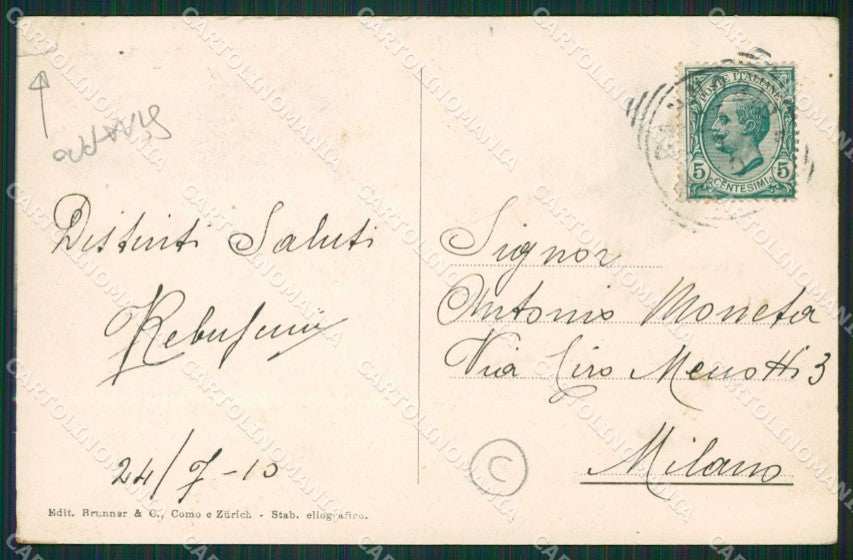 STRAPPO
POSTE ITALIANE
5 CENTESIMI 5
Distinti Saluti
24/7-10
Signor
Antonio Moneta
Via Ciro Menotti 3
Milano
C
Edit. Brunner & C., Como e Zürich - Stab. eliografico.
CARTOLINOMANIA